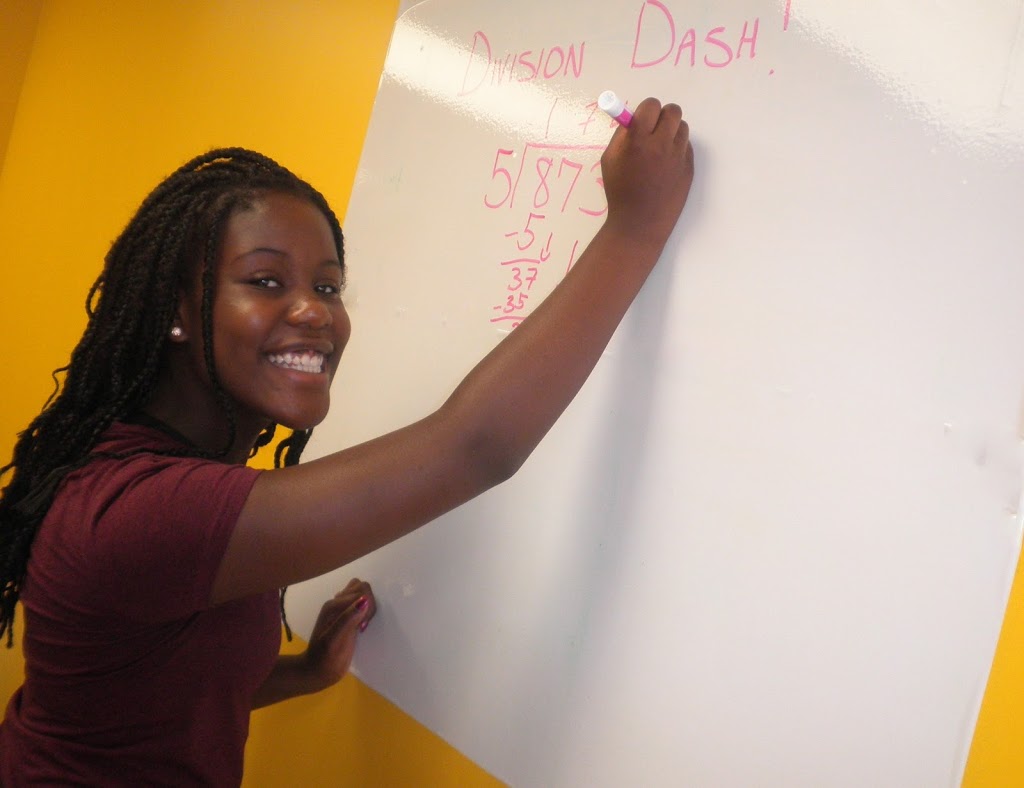 DIVISION DASH!
1 7
5 873
-5
37
-35